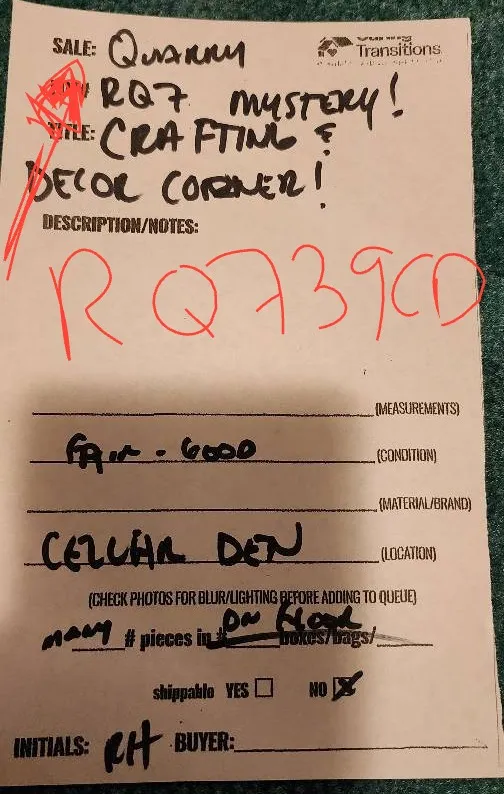 SALE: QUARRY
Caring Transitions
RQ7 MYSTERY!
TITLE: CRAFTING &
DECOR CORNER!
DESCRIPTION/NOTES:
RQ739CD
(MEASUREMENTS)
FAIR - GOOD (CONDITION)
(MATERIAL/BRAND)
CELLUAR DEN (LOCATION)
(CHECK PHOTOS FOR BLUR/LIGHTING BEFORE ADDING TO QUEUE)
MANY # pieces in # ON FLOOR boxes/bags/
shippable YES NO
INITIALS: RH BUYER: